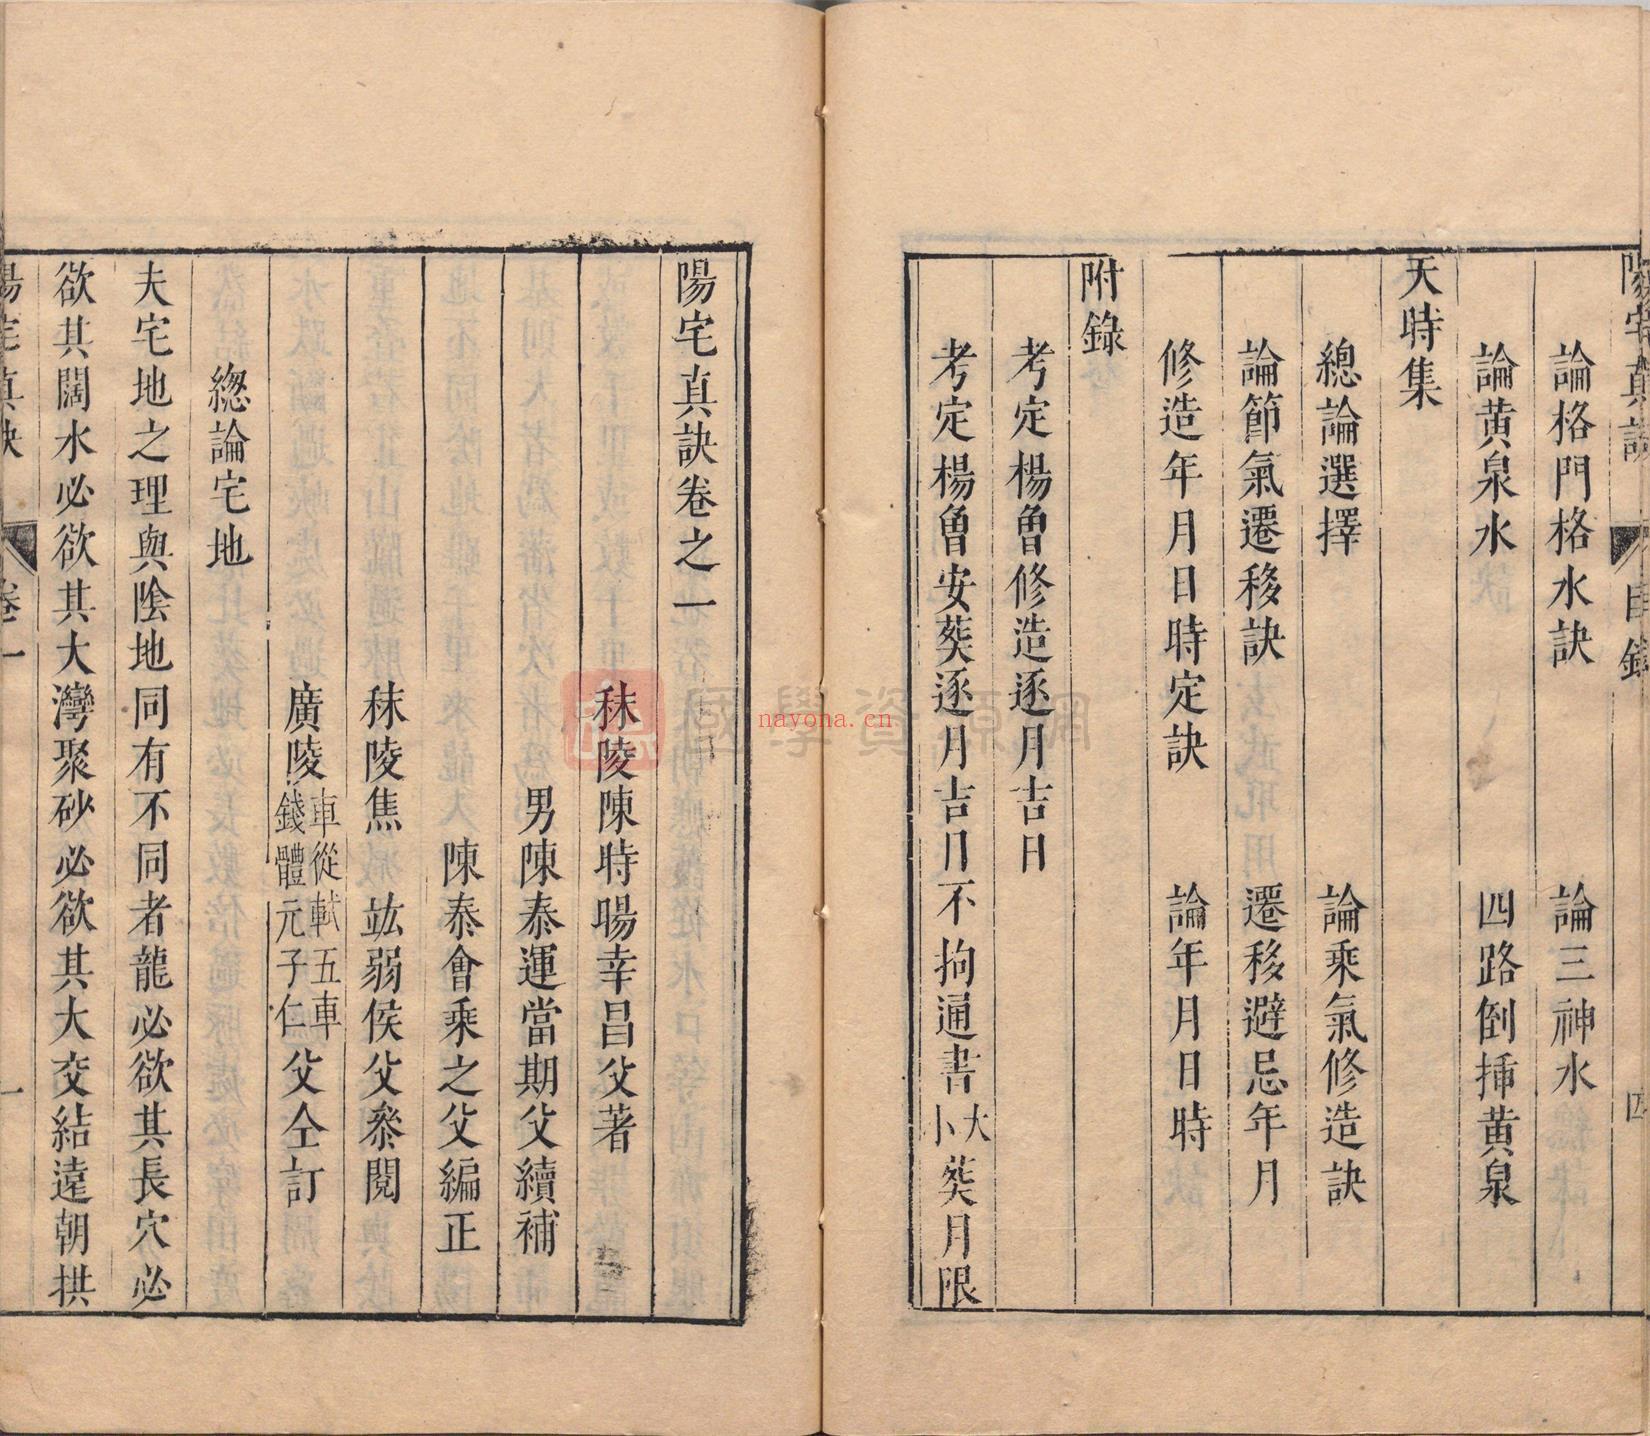 陽宅真訣 目錄 四
論格門格水訣 論三神水
論黄泉水 四路倒揷黄泉
天時集
總論選擇 論乘氣修造訣
論節氣遷移訣 遷移避忌年月
修造年月日時定訣 論年月日時
附錄
考定楊曾修造逐月吉日
考定楊曾安葬逐月吉日不拘通書大小葬月限
陽宅真訣卷之一
秣陵陳時暘幸昌父著
男陳泰運當期父續補
陳泰會乘之父編正
秣陵焦竑弱侯父叅閱
廣陵車從軾五車錢體元子仁父仝訂
總論宅地
夫宅地之理與陰地同有不同者龍必欲其長穴必
欲其闊水必欲其大灣聚砂必欲其大交結遠朝拱
陽宅真訣 卷一 一
國學資源網
nayona.cn